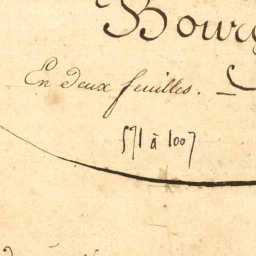 Bourg
En deux feuilles. _
571 à 1007